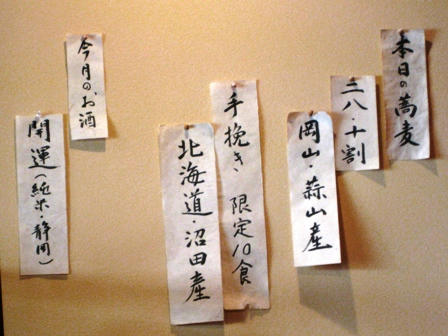 本日の蕎麦
三八・十割
岡山・蒜山産
手挽き、限定10食
北海道・沼田産
今月のお酒
開運(純米・静岡)